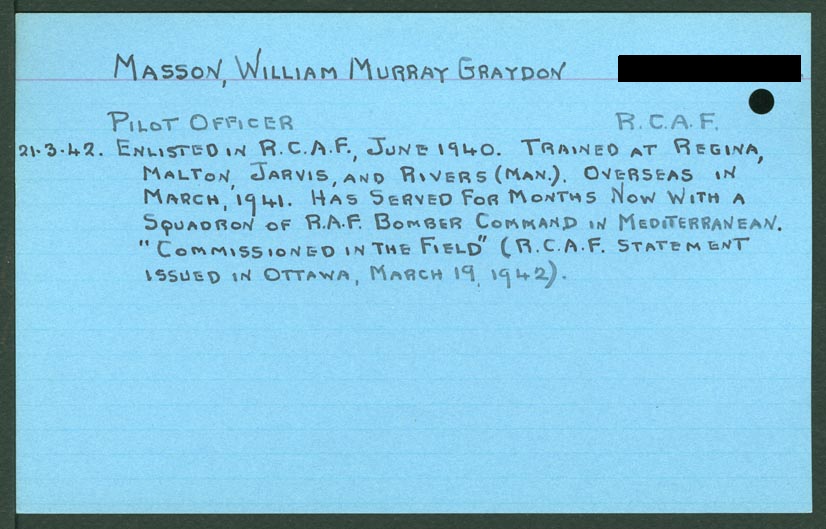 MASSON, WILLIAM MURRAY GRAYDON
PILOT OFFICER R.C.A.F.
21-3-42. ENLISTED IN R.C.A.F., JUNE 1940. TRAINED AT REGINA,
MALTON, JARVIS, AND RIVERS (MAN.). OVERSEAS IN
MARCH, 1941. HAS SERVED FOR MONTHS NOW WITH A
SQUADRON OF R.A.F. BOMBER COMMAND IN MEDITERRANEAN.
"COMMISSIONED IN THE FIELD" (R.C.A.F. STATEMENT
ISSUED IN OTTAWA, MARCH 19, 1942).